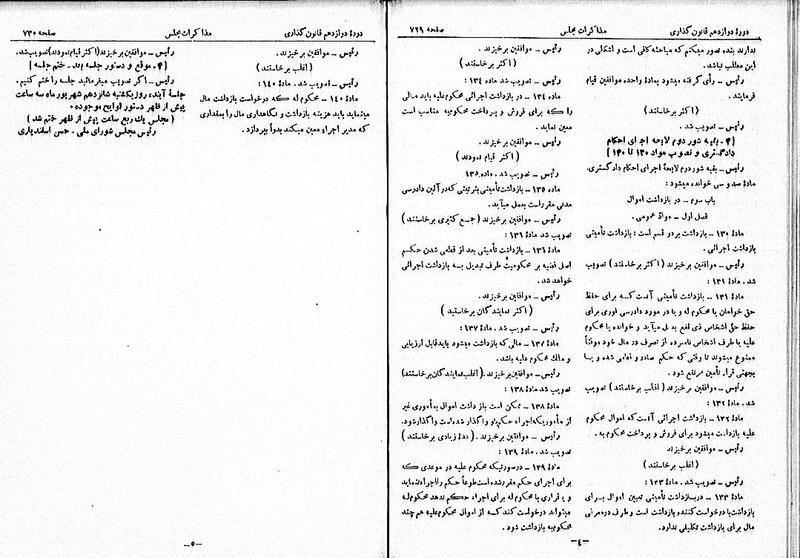 دورهٔ دوازدهم قانون گذاری
مذاکرات مجلس
صفحه ۷۲۹
ندارند بنده تصور میکنم که مباحثه کافی است و اشکالی در
این مطلب نباشد.
رئیس ـ رأی گرفته میشود بمادهٔ واحده موافقین قیام
فرمایند.
(اکثر برخاستند)
رئیس ـ تصویب شد.
[۳ـ بقیه شور دوم لایحه اجرای احکام
دادگستری و تصویب مواد ۱۳۰ تا ۱۴۰]
رئیس ـ بقیه شور دوم لایحهٔ اجرای احکام دادگستری.
مادهٔ صد و سی خوانده میشود:
باب سوم ـ در بازداشت اموال
فصل اول ـ مواد عمومی.
مادهٔ ۱۳۰ ـ بازداشت بر دو قسم است: بازداشت تأمینی
بازداشت اجرائی.
رئیس ـ موافقین برخیزند (اکثر برخاستند) تصویب
شد. مادهٔ ۱۳۱:
مادهٔ ۱۳۱ ـ بازداشت تأمینی آنست که برای حفظ
حق خواهان یا محکوم له و یا در مورد دادرسی فوری برای
حفظ حق اشخاص ذی نفع بعمل میآید و خوانده یا محکوم
علیه یا طرف اشخاص نامبرده از تصرف در مال خود موقتاً
ممنوع میشوند تا وقتی که حکم صادر و قطعی شده و یا
بجهتی قرار تأمین مرتفع شود.
رئیس ـ موافقین برخیزند (اغلب برخاستند) تصویب
شد. مادهٔ ۱۳۲:
مادهٔ ۱۳۲ ـ بازداشت اجرائی آنست که اموال محکوم
علیه بازداشت میشود برای فروش و پرداخت محکوم به.
رئیس ـ موافقین برخیزند
(اغلب برخاستند)
رئیس ـ تصویب شد. مادهٔ ۱۳۳:
مادهٔ ۱۳۳ ـ در بازداشت تأمینی تعیین اموال برای
بازداشت با درخواست کننده بازداشت است و طرف در معرفی
مال برای بازداشت تکلیفی ندارد.
رئیس ـ موافقین برخیزند.
(اکثر برخاستند)
رئیس ـ تصویب شد ماده ۱۳۴:
ماده ۱۳۴ ـ در بازداشت اجرائی محکوم علیه باید مالی
را که برای فروش و پرداخت محکوم به مناسب است
معین نماید.
رئیس ـ موافقین برخیزند.
(اکثر قیام نمودند)
رئیس ـ تصویب شد. ماده ۱۳۵
ماده ۱۳۵ ـ بازداشت تأمینی بترتیبی که در آئین دادرسی
مدنی مقرر است بعمل میآید.
رئیس ـ موافقین برخیزند (جمع کثیری برخاستند)
تصویب شد مادهٔ ۱۳۶:
مادهٔ ۱۳۶ ـ بازداشت تأمینی بعد از قطعی شدن حکم
اصل قضیه بر محکومیت طرف تبدیل به بازداشت اجرائی
خواهد شد.
رئیس ـ موافقین برخیزند.
(اکثر نمایندگان برخاستند)
رئیس ـ تصویب شد. مادهٔ ۱۳۷:
مادهٔ ۱۳۷ ـ مالی که بازداشت میشود باید قابل ارزیابی
و مالک محکوم علیه باشد.
رئیس ـ موافقین برخیزند. (اغلب نمایندگان برخاستند)
تصویب شد ماده ۱۳۸:
مادهٔ ۱۳۸ ـ ممکن است بازداشت اموال بمأموری غیر
از مأموریکه اجراء حکم باو واگذار شده است واگذار شود.
رئیس ـ موافقین برخیزند. (عدهٔ زیادی برخاستند)
تصویب شد. ماده ۱۳۹:
مادهٔ ۱۳۹ ـ در صورتیکه محکوم علیه در موعدی که
برای اجرای حکم مقرر شده است طوعاً حکم را اجراء ننماید
و یا قراری با محکوم له برای اجراء حکم ندهد محکوم له
میتواند درخواست کند که از اموال محکوم علیه هم چند
محکوم به بازداشت شود.
ـ۴ـ
دورهٔ دوازدهم قانون گذاری
مذاکرات مجلس
صفحه ۷۳۰
رئیس ـ موافقین برخیزند.
(اغلب برخاستند)
رئیس ـ تصویب شد. مادهٔ ۱۴۰:
مادهٔ ۱۴۰ ـ محکوم له که درخواست بازداشت مال
مینماید باید هزینه بازداشت و نگاهداری مال را بمقداری
که مدیر اجراء معین میکند بدواً بپردازد.
رئیس ـ موافقین برخیزند (اکثر قیام نمودند) تصویب شد.
[۴ـ موقع و دستور جلسه بعد ـ ختم جلسه]
رئیس ـ اگر تصویب میفرمائید جلسه را ختم کنیم.
جلسهٔ آینده روز یکشنبه شانزدهم شهریور ماه سه ساعت
پیش از ظهر دستور لوایح موجوده.
(مجلس یک ربع ساعت پیش از ظهر ختم شد)
رئیس مجلس شورای ملی ـ حسن اسفندیاری
ـ۵ـ